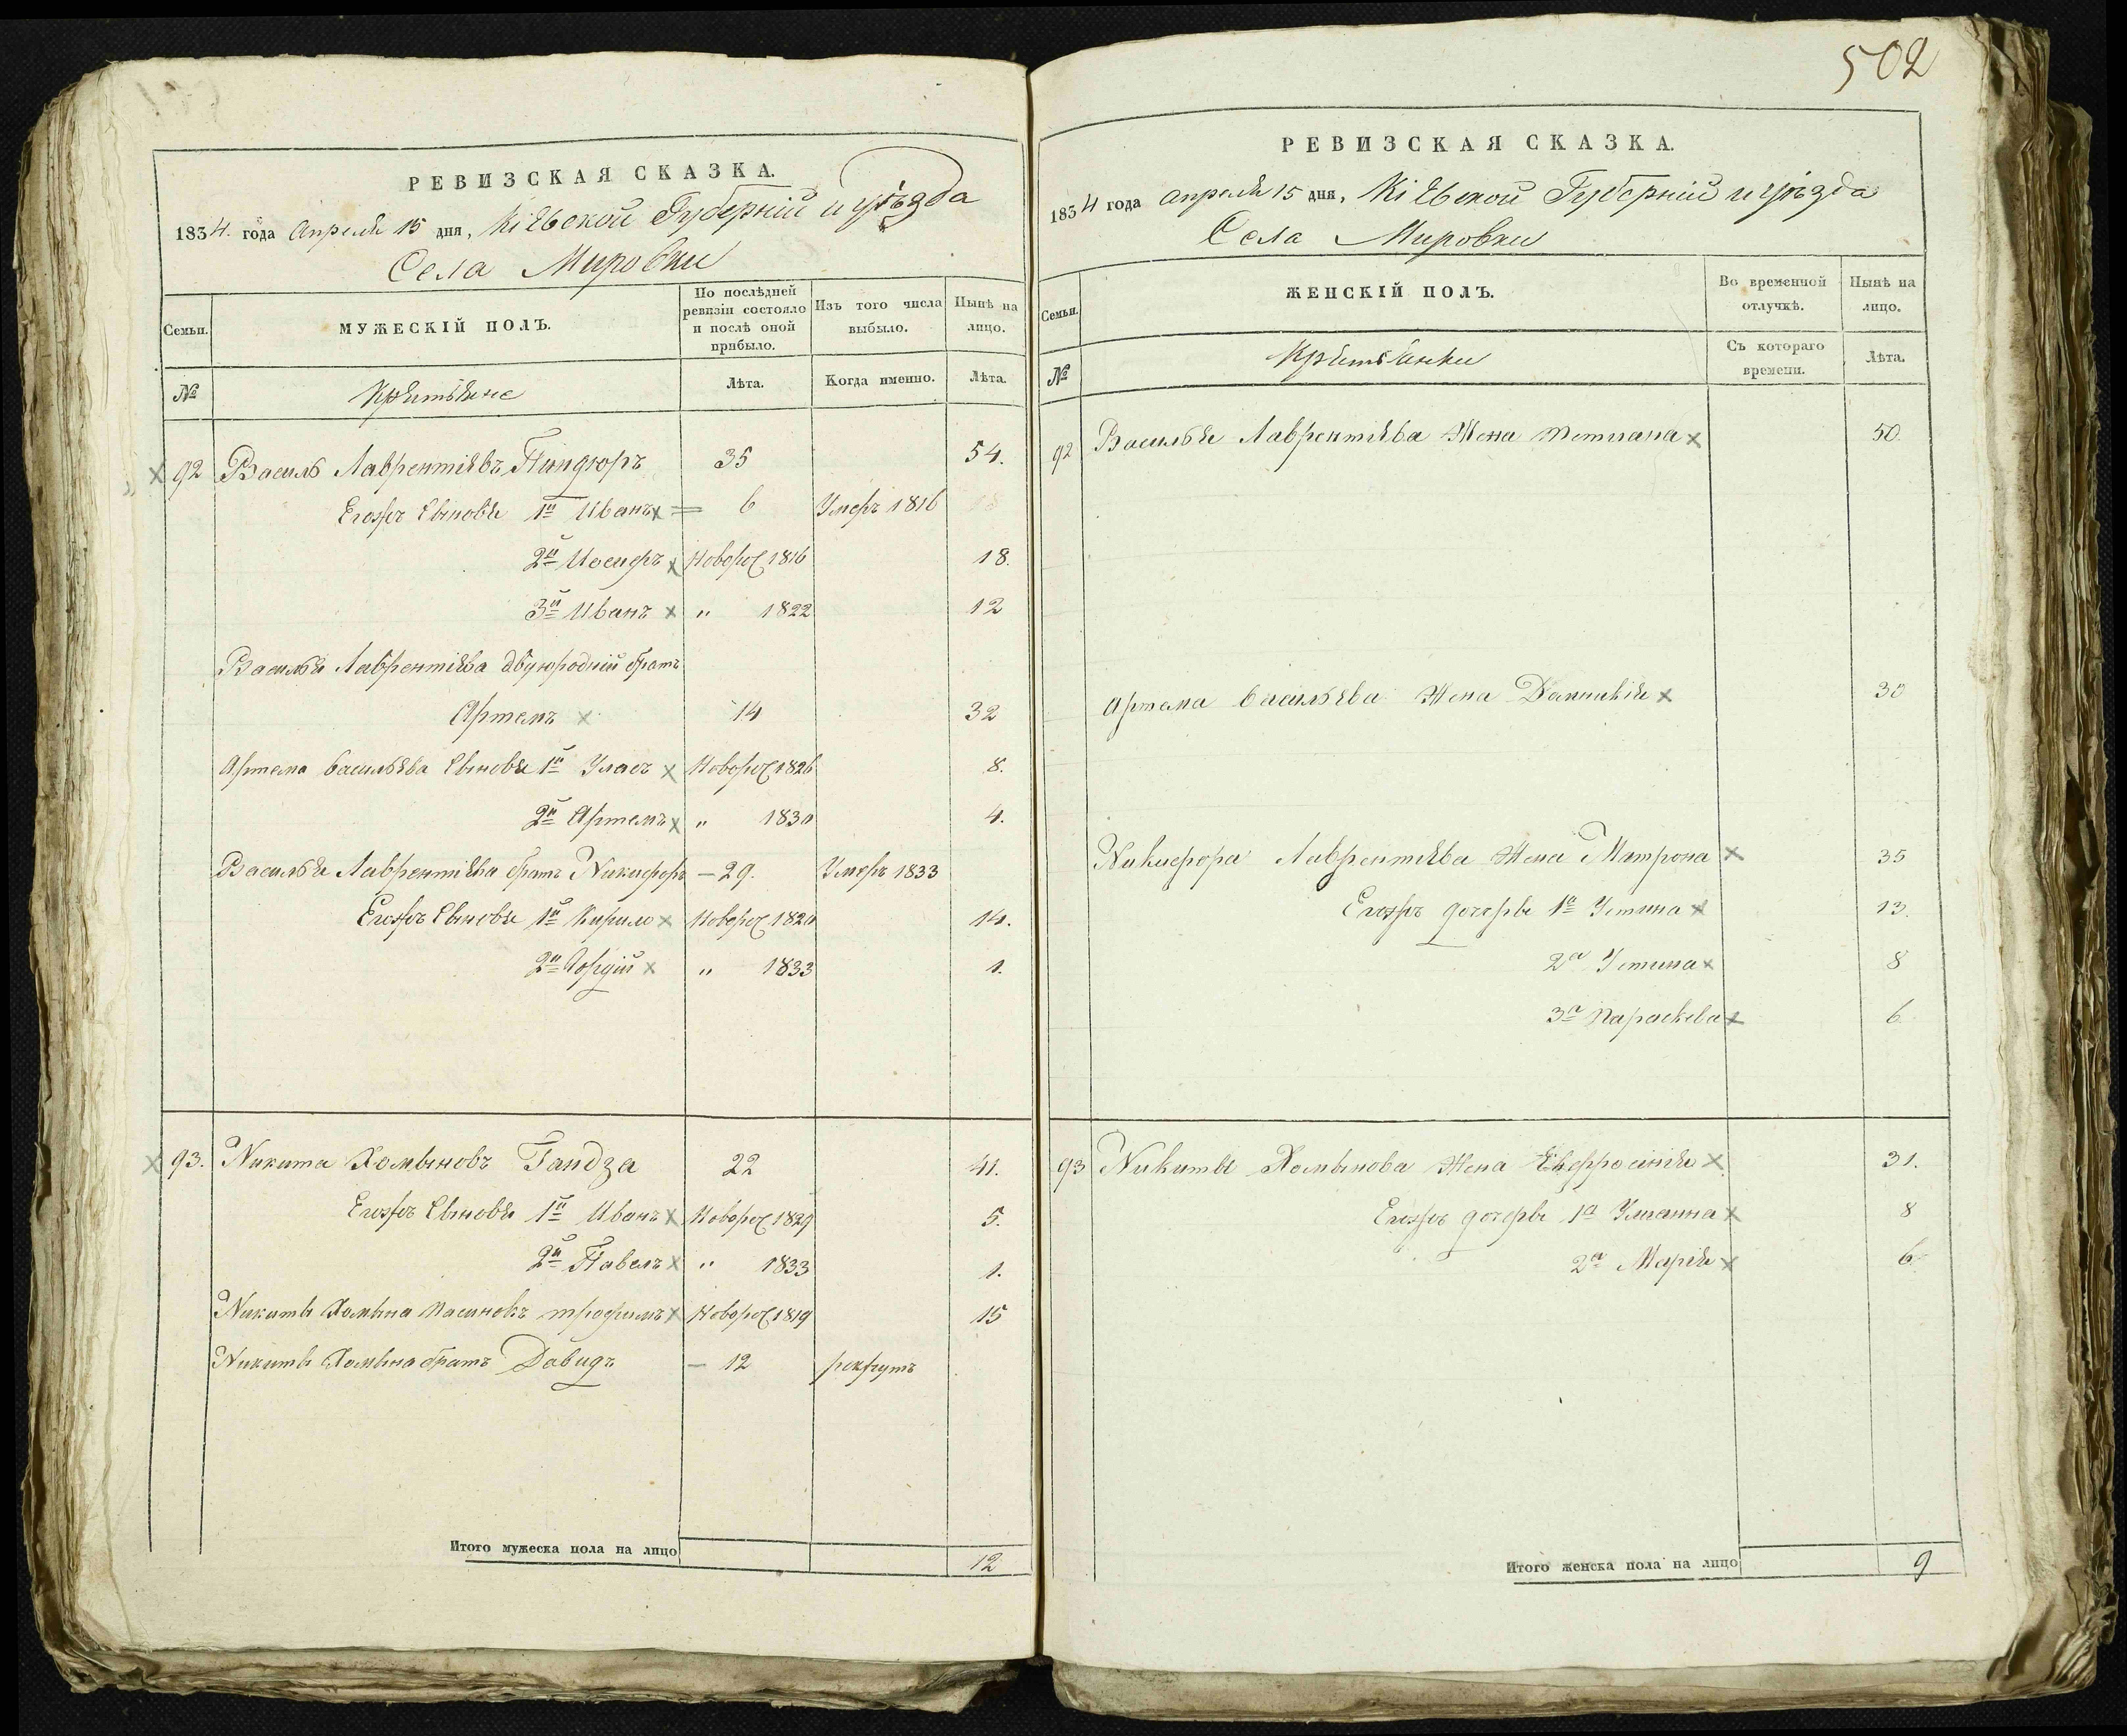 РЕВИЗСКАЯ СКАЗКА.
1834. года Апреля 15 дня, Кіевской Губерніи и уѣзда
Села Мировки
Семьи.
МУЖЕСКІЙ ПОЛЪ.
По послѣдней ревизіи состояло и послѣ оной прибыло.
Изъ того числа выбыло.
Нынѣ на лицо.
№
Крѣстьяне
Лѣта.
Когда именно.
Лѣта.
92 Василь Лаврентіевъ 35 54.
Егожъ Сыновья 1й Иванъ 6 Умеръ 1816
2й Иосифъ Новорож 1816 18.
3й Иванъ „ 1822 12
Василья Лаврентіева двуюродній братъ
Артемъ 14 32
Артема Васильева Сыновья 1й Уласъ Новорож 1826 8.
2й Артемъ „ 1830 4.
Василья Лаврентіева братъ Никифоръ — 29. Умеръ 1833
Егожъ Сыновья 1й Кирило Новорож 1820 14.
2й Гордій „ 1833 1.
93. Никита Хоминовъ Гандза 22 41.
Егожъ Сыновья 1й Иванъ Новорож 1829 5.
2й Павелъ „ 1833 1.
Никиты Хомина пасинокъ трофимъ Новорож 1819 15
Никиты Хомина братъ Давидъ — 12 рекрутъ
Итого мужеска пола на лицо 12
502
РЕВИЗСКАЯ СКАЗКА.
1834 года апреля 15 дня, Кіевской Губерніи и уѣзда
Села Мировки
Семьи.
ЖЕНСКІЙ ПОЛЪ.
Во временной отлучкѣ.
Нынѣ на лицо.
№
Крѣстьянки
Съ котораго времени.
Лѣта.
92 Василья Лаврентіева Жена Тетиана 50.
Артема Васильева Жена Домникія 30
Никифора Лаврентіева Жена Матрона 35
Егожъ дочеры 1а Устина 13.
2а Устина 8
3а Параскева 6.
93 Никиты Хоминова Жена Евфросинія 31.
Егожъ дочеры 1а Улианна 8
2а Марія 6
Итого женска пола на лицо 9